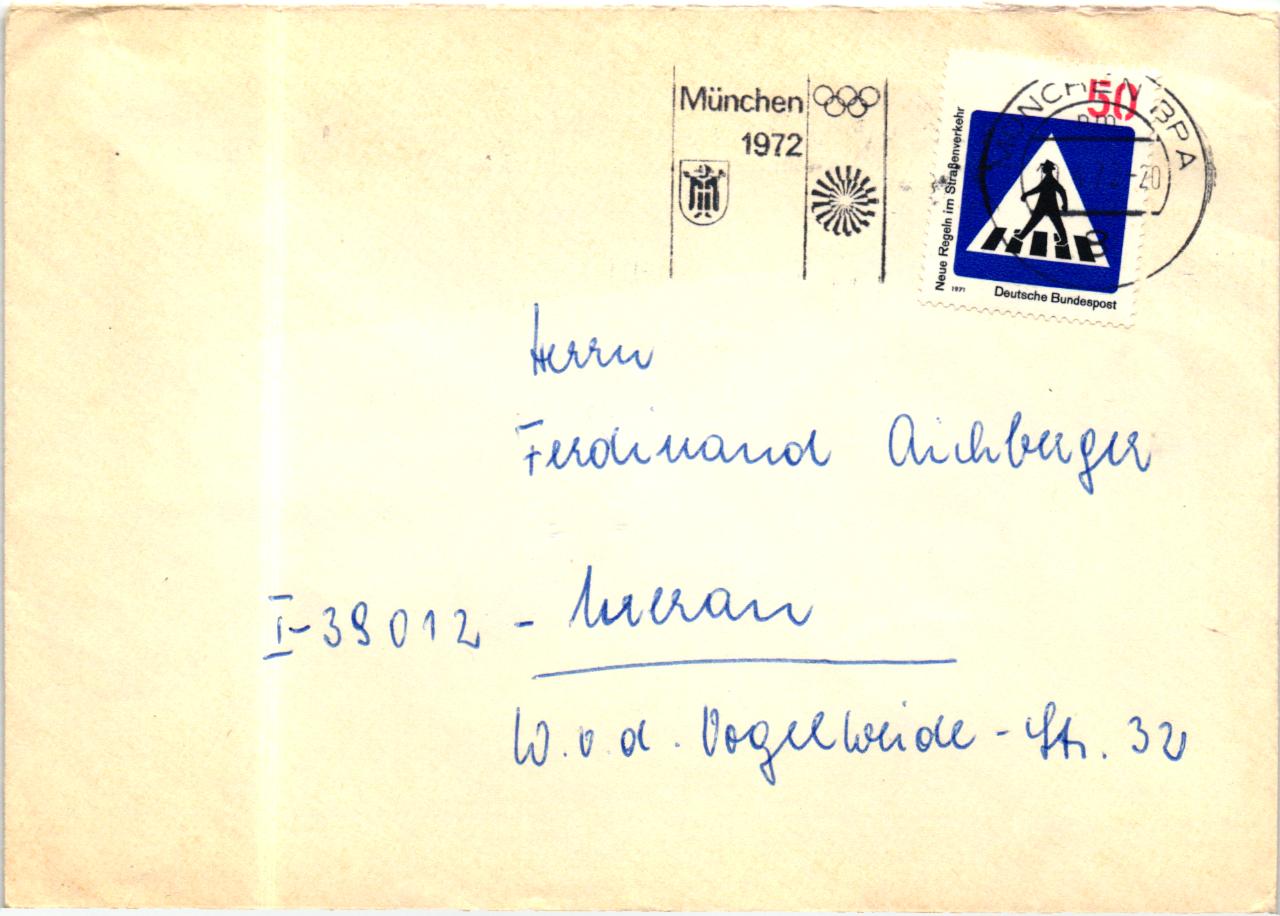 München
1972
50
Neue Regeln im Straßenverkehr
1971
Deutsche Bundespost
MÜNCHEN BPA
-20
8
Herrn
Ferdinand Aichberger
I-39012 - Meran
W.v.d. Vogelweide-Str. 32